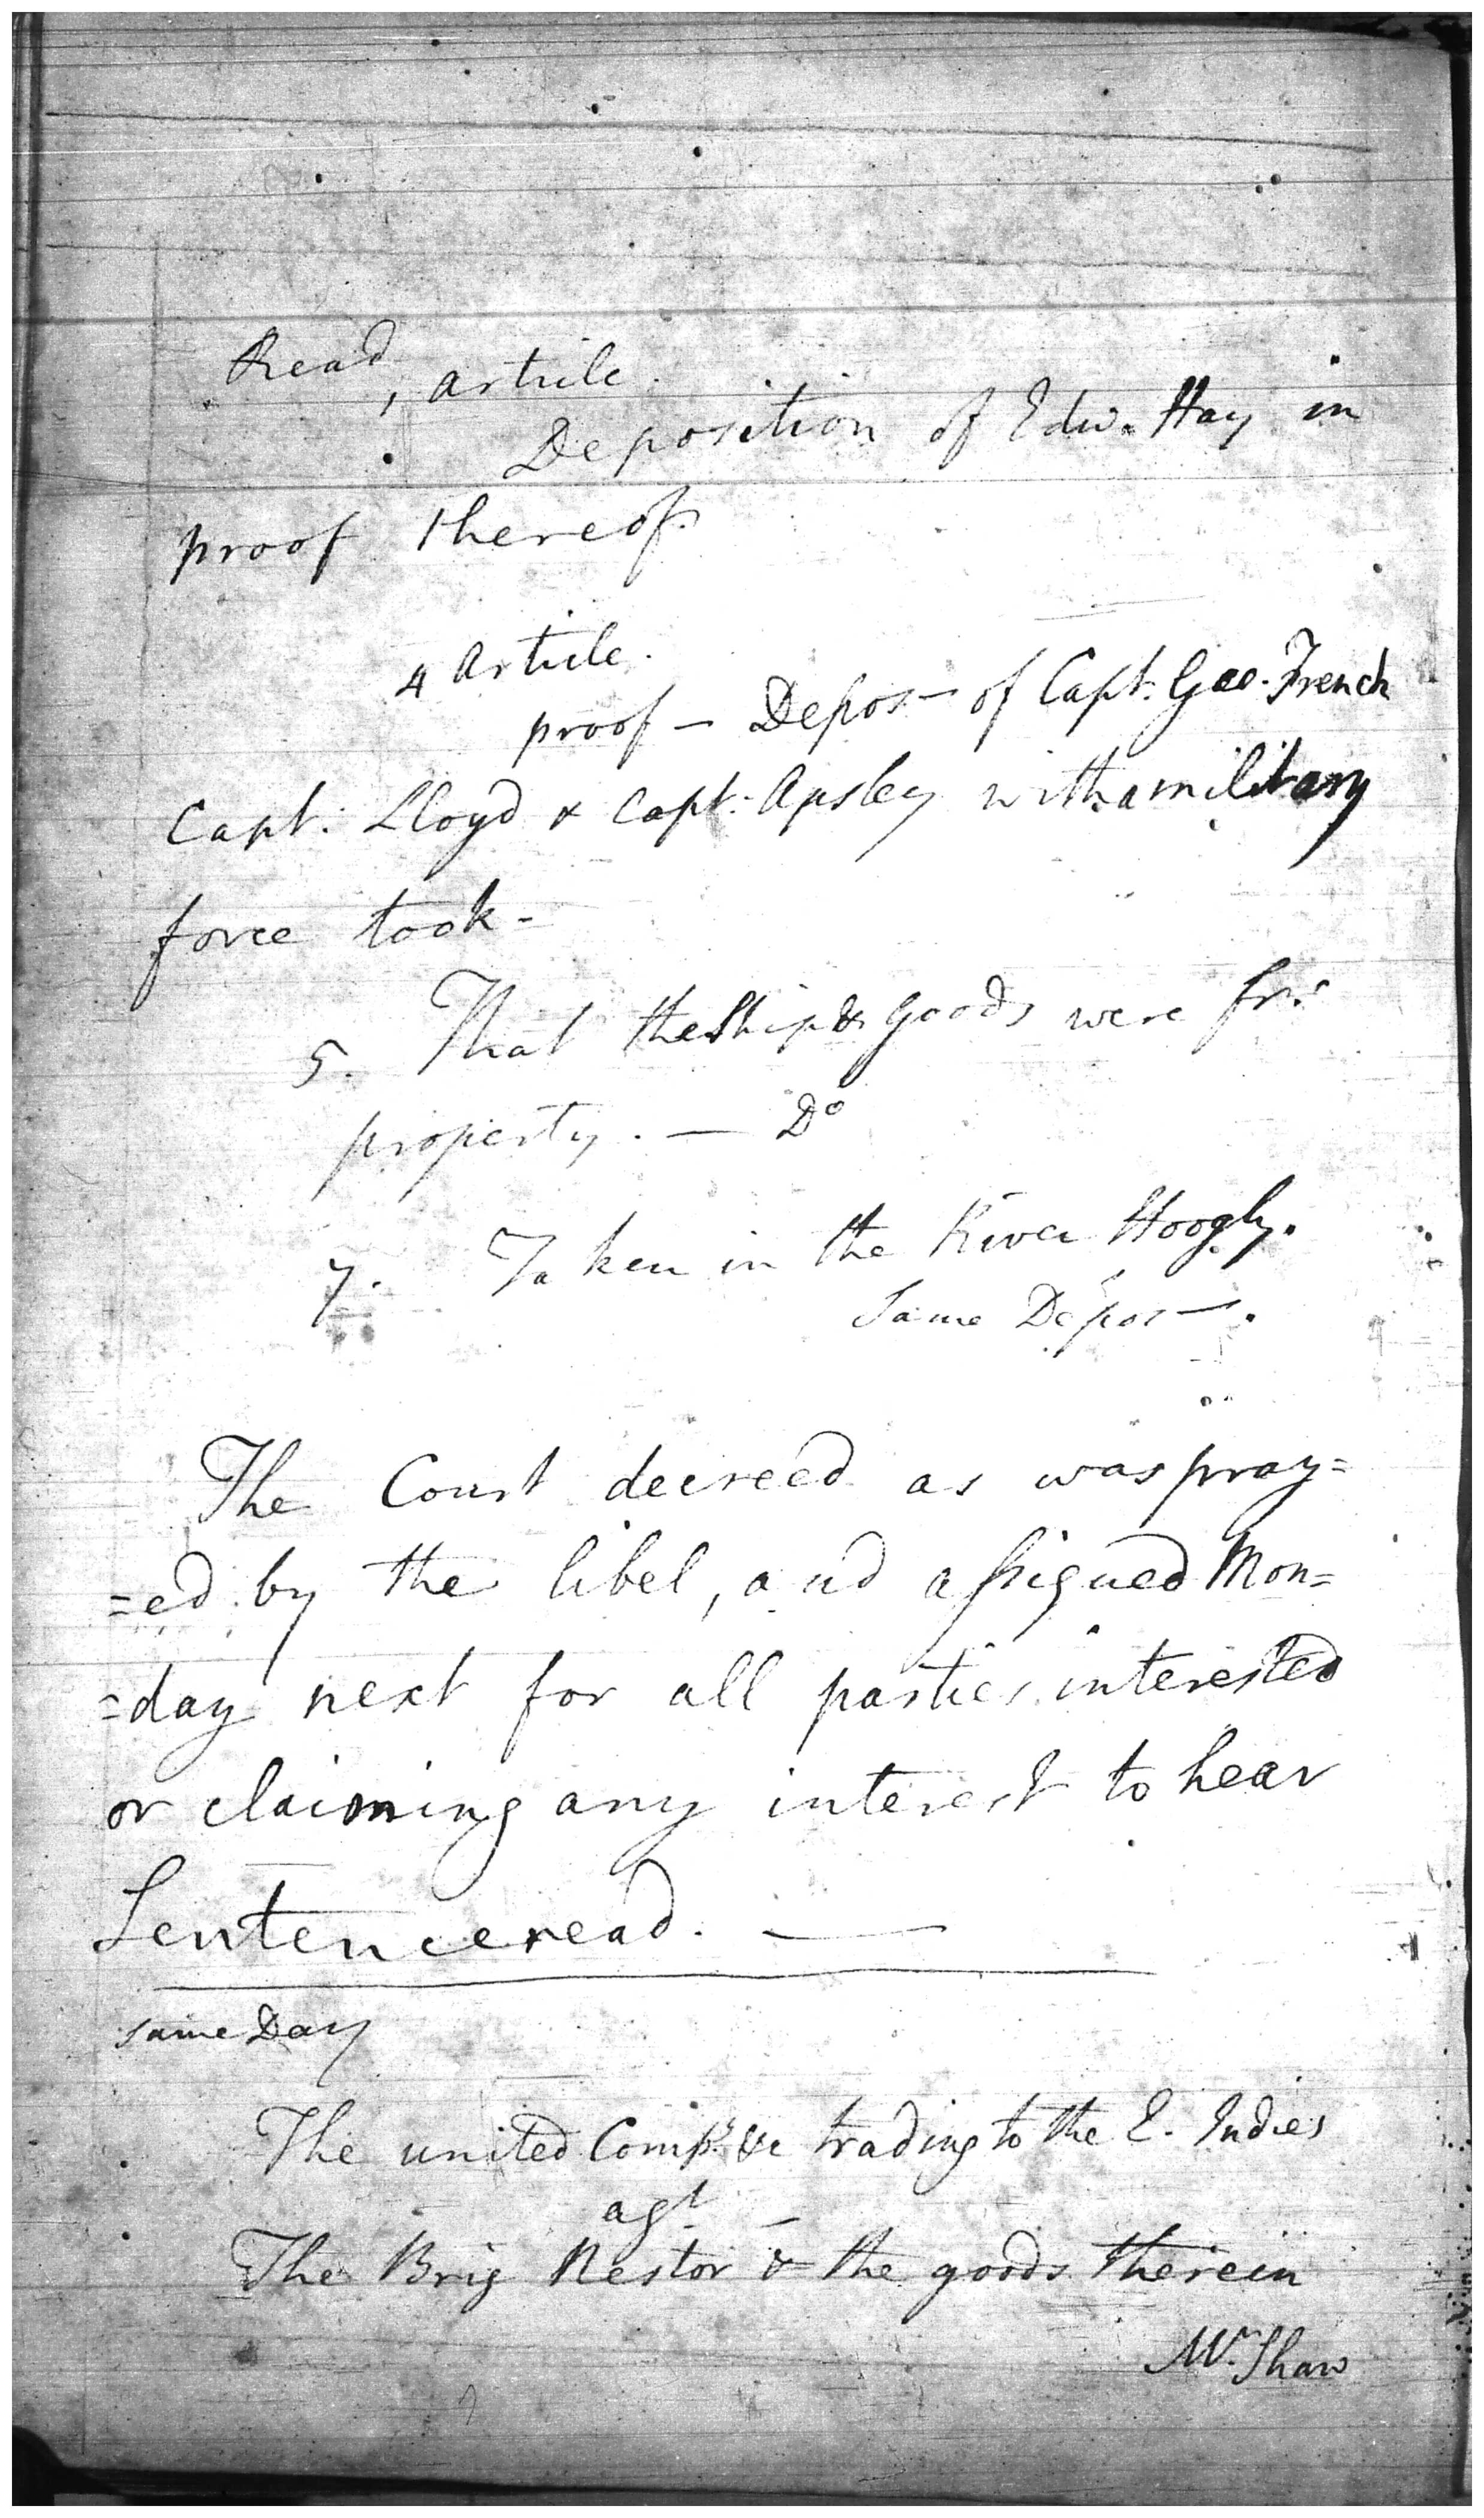 Read
1 article.
Deposition of Edw. Hay in
proof thereof.
4 article.
proof — Depos— of Capt. Geo. French
Capt. Lloyd & Capt. Apsley with a military
force took -
5. That the Ship & goods were fr:
property. — Do
7. Taken in the River Hoogly.
Same Depos—.
The Court decreed as was pray=
=ed by the libel, and assigned Mon=
=day next for all parties interested
or claiming any interest to hear
Sentence read. —
same Day
The united Comp. &c trading to the E. Indies
agt
The Brig Nestor & the goods therein
Mr. Shaw